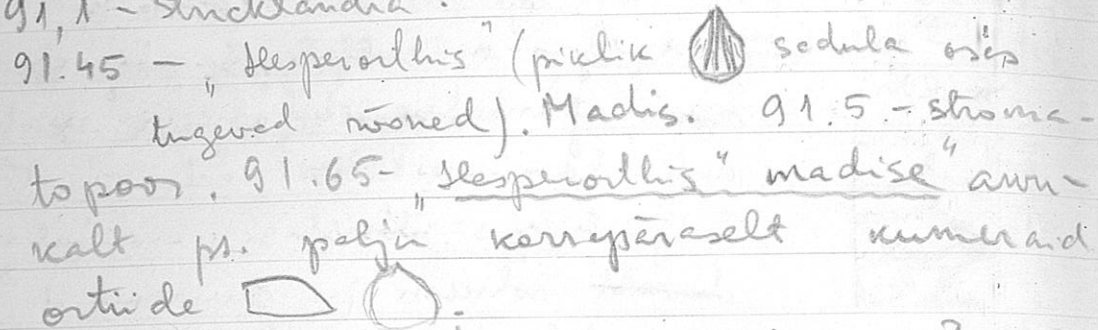 91,1 - Stricklandia.
91.45 - „Hesperorthis" (piklik sedula osas
tugevad rööned). Madis. 91.5 - stroma-
topoor. 91.65 - „Hesperorthis" madise" arvu-
kalt ps. palju korrapäraselt kumeraid
ortiide